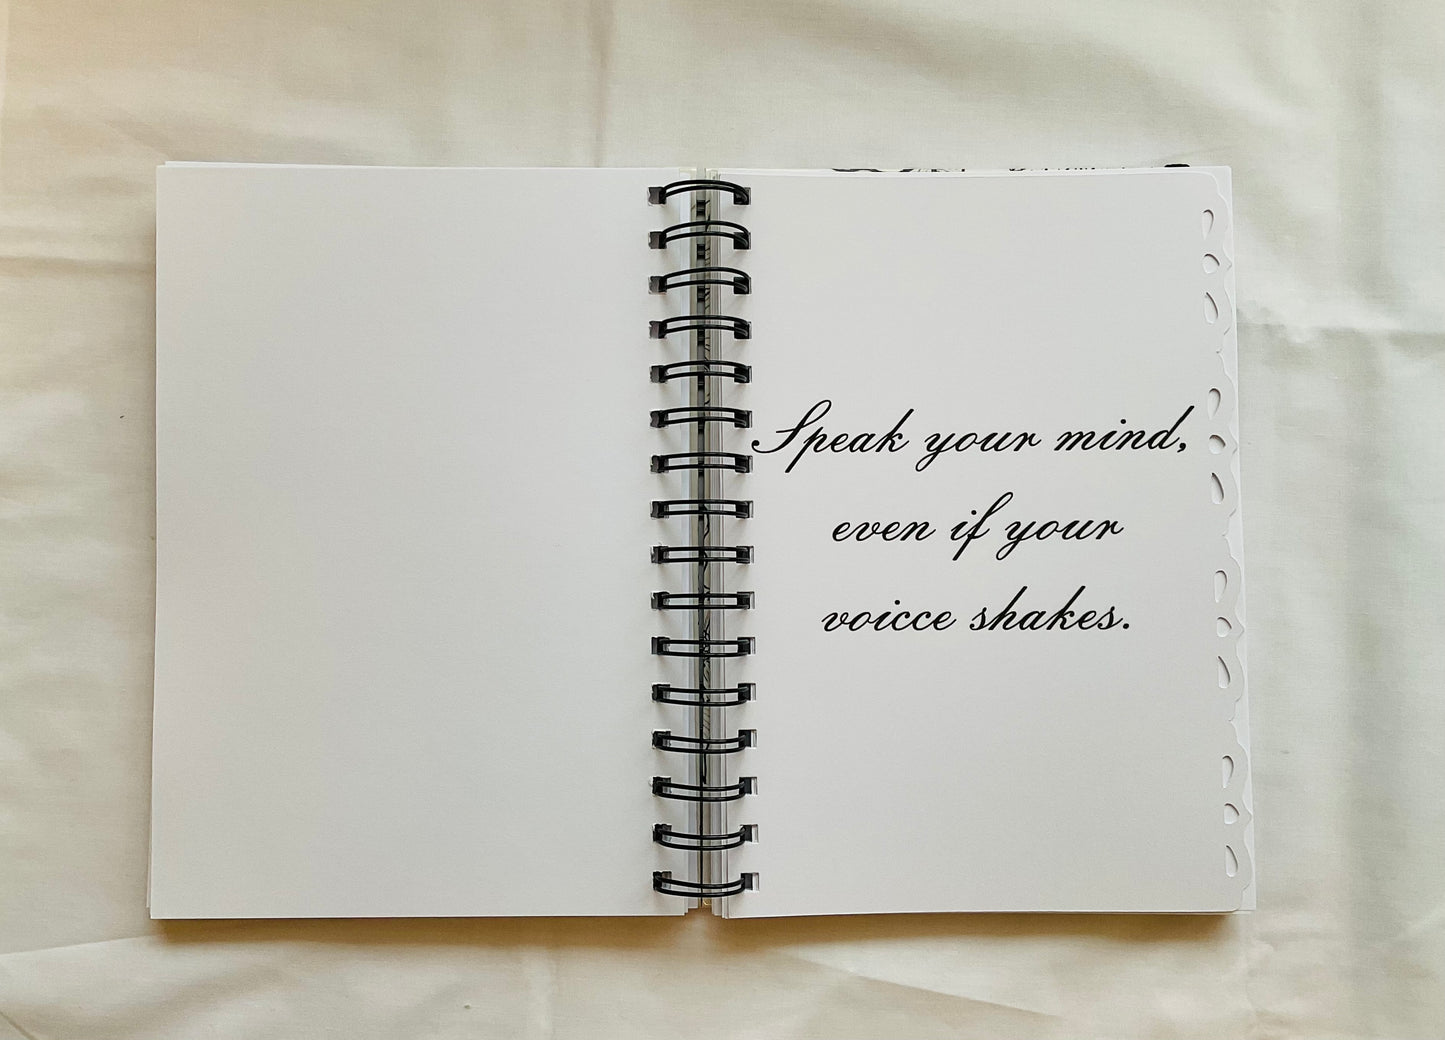 Speak your mind,
even if your
voicce shakes.